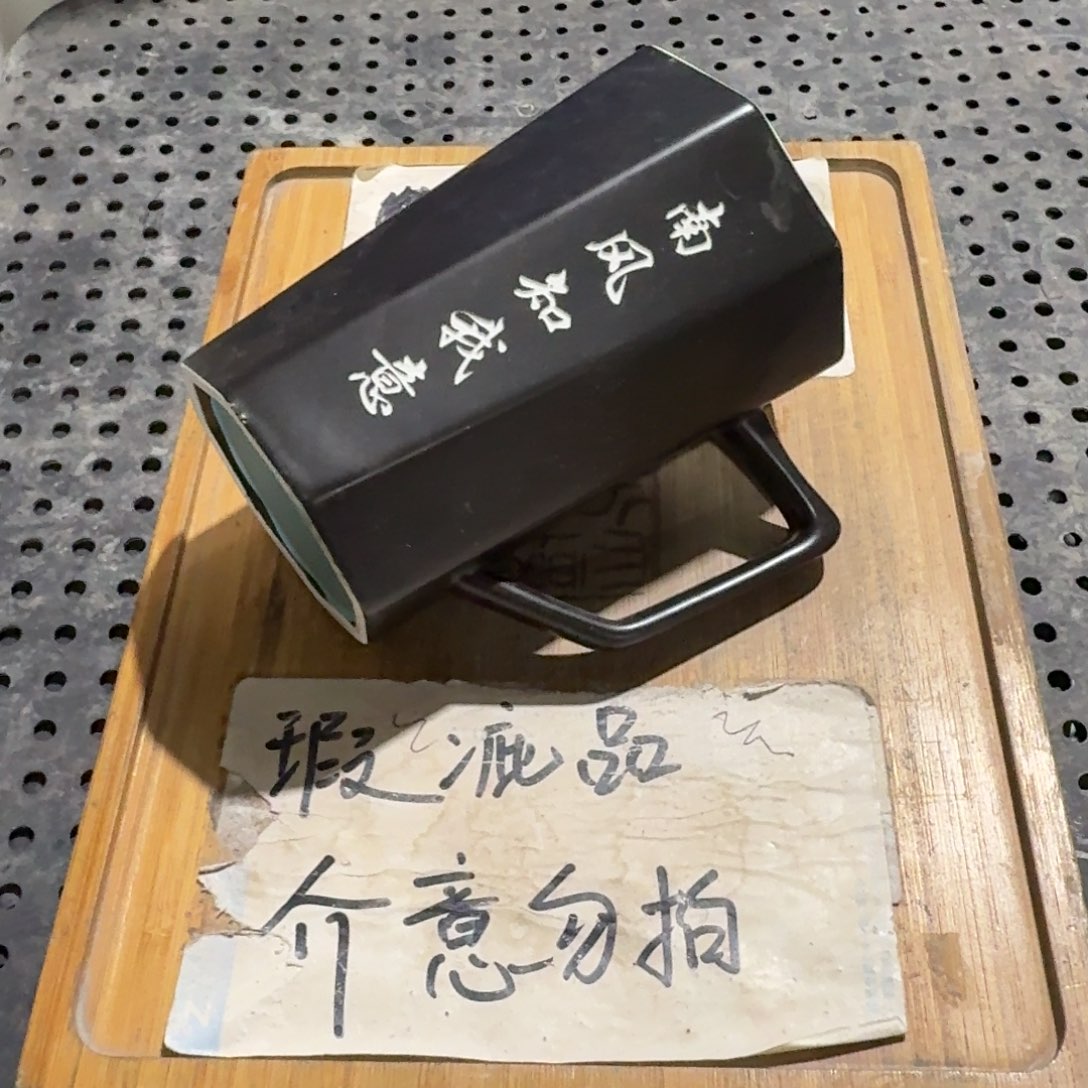 南风知我意
瑕疵品
介意勿拍